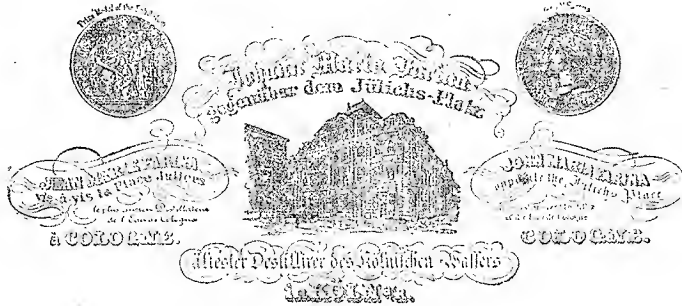 Johann Maria Farina
gegenüber dem Jülichs-Platz
JEAN MARIE FARINA
vis à vis la Place Juliers
les plus anciens Distillateurs
de l'Eau de Cologne
à COLOGNE.
JOHN MARIA FARINA
opposite the Jülichs Place
COLOGNE.
ältester Destillirer des Kölnischen Wassers
in KÖLN a.